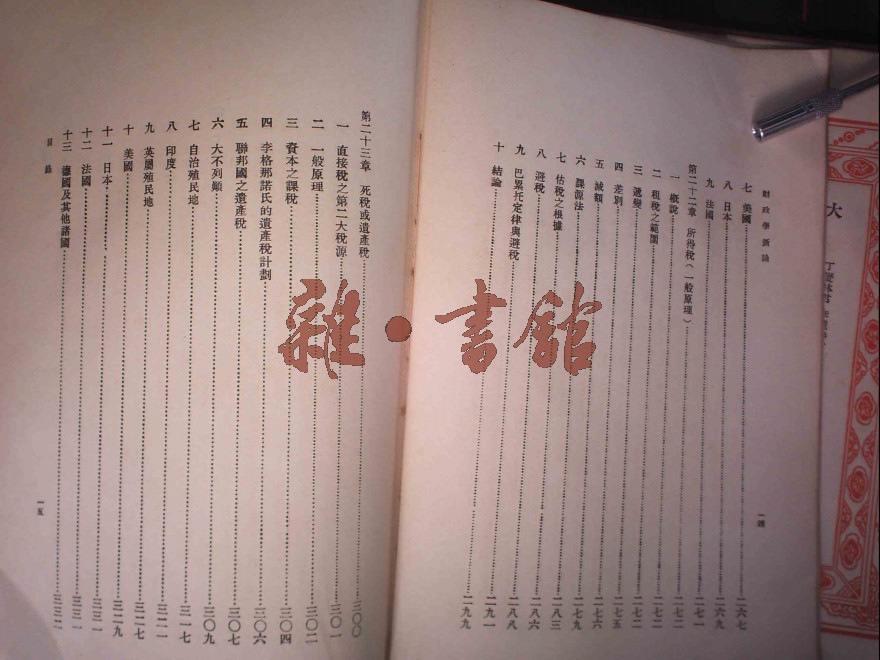 財政學新論
七 美國 二六七
八 日本 二六九
九 法國 二七一
第二十二章 所得稅（一般原理）
一 概說 二七二
二 租稅之範圍 二七二
三 遞變 二七二
四 差別 二七五
五 減額 二七六
六 課源法 二七九
七 估稅之根據 二八三
八 避稅 二八六
九 巴累托定律與避稅 二八八
十 結論 二九一
二九九
一四
第二十三章 死稅或遺產稅 三〇〇
一 直接稅之第二大稅源 三〇一
二 一般原理 三〇二
三 資本之課稅 三〇四
四 李格那諾氏的遺產稅計劃 三〇六
五 聯邦國之遺產稅 三〇七
六 大不列顛 三〇九
七 自治殖民地 三一七
八 印度 三二一
九 英屬殖民地 三二七
十 美國 三二九
十一 日本 三三一
十二 法國 三三一
十三 德國及其他諸國 三三二
目錄
一五
雜·書館
大